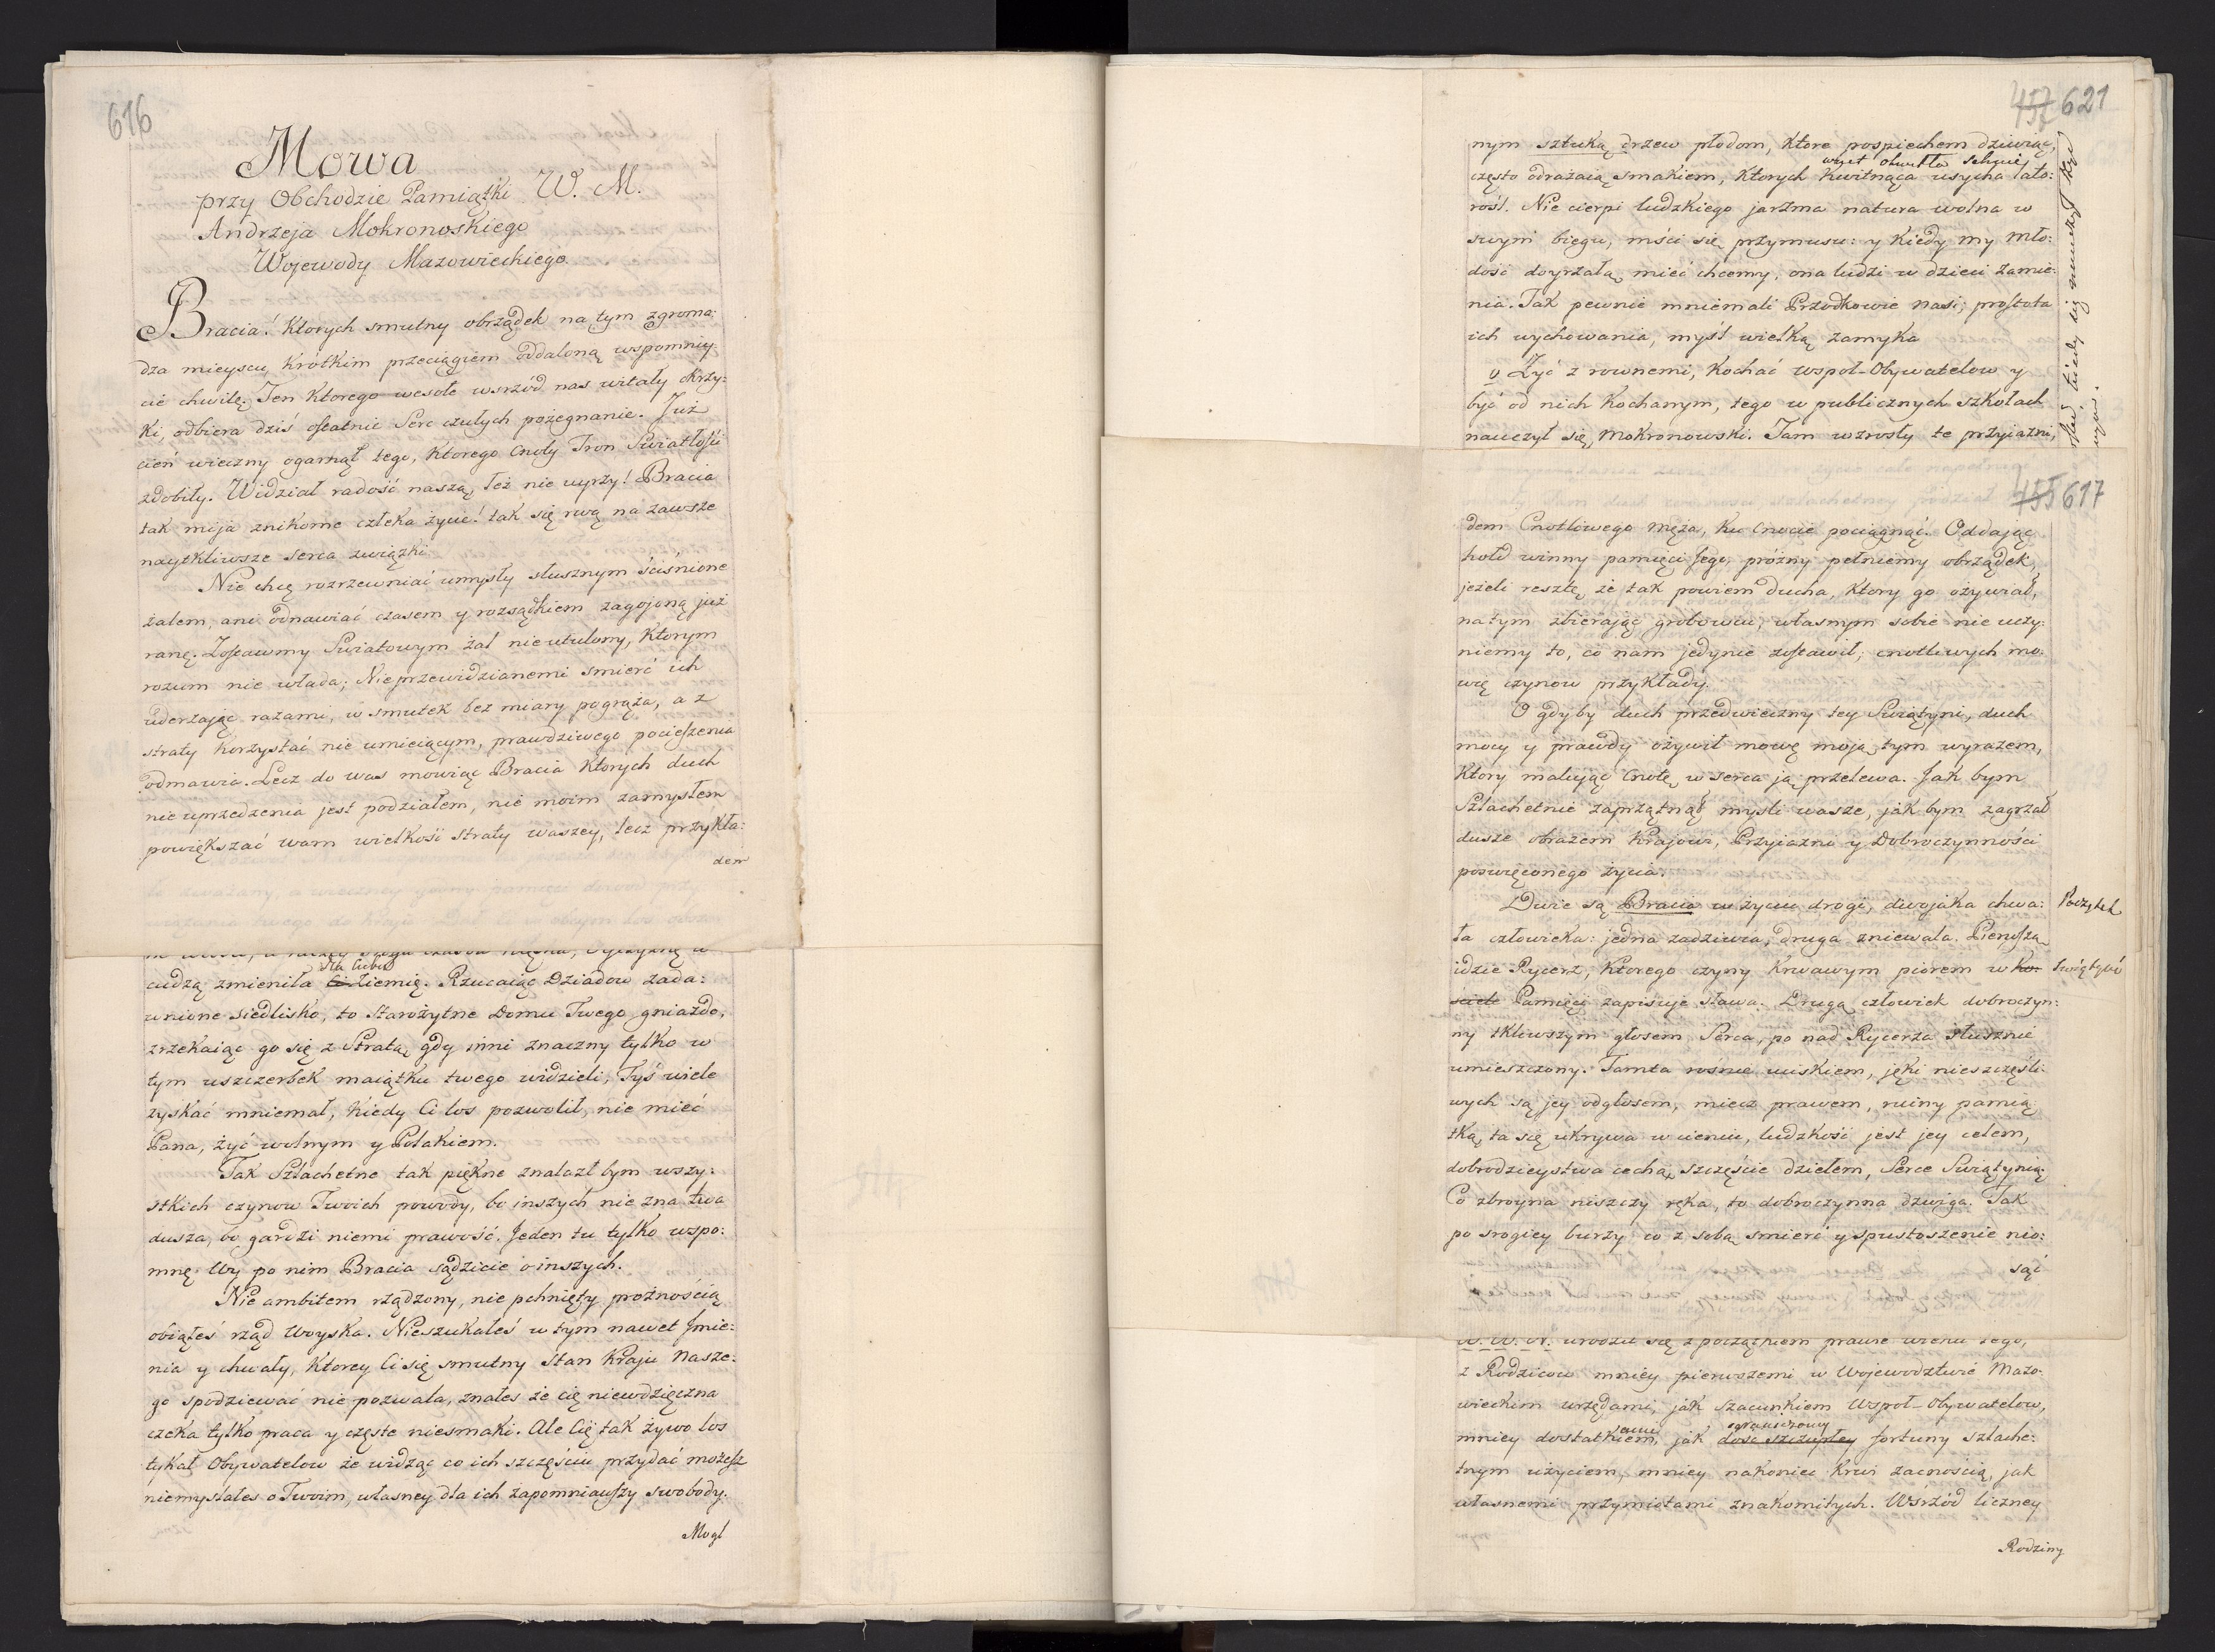 616
Mowa
przy Obchodzie Pamiątki W. M.
Andrzeja Mokronoskiego
Wojewody Mazowieckiego.
Bracia! Ktorych smutny obrządek na tym zgroma:
dza mieyscu, krótkim przeciągiem oddaloną wspomniy:
cie chwilę. Ten Ktorego wesołe wsrzód nas witały okrzy:
ki, odbiera dziś ostatnie Serc czułych pożegnanie. Już
cień wieczny ogarnął tego, Ktorego Cnoty Tron Swiatłości
zdobiły. Widział radość naszą, łez nie uyrzy! Bracia
tak mija znikome człeka życie! tak się rwą na zawsze
naytkliwsze serca związki
Nie chcę rozrzewniać umysły słusznym ściśnione
żalem, ani odnawiać czasem y rozsądkiem zagojoną już
ranę. Zostawmy Swiatowym żal nieutulony, Ktorym
rozum nie włada; Nieprzewidzianemi smierć ich
uderzając razami, w smutek bez miary pogrąża, a z
straty korzystać nie umieiącym, prawdziwego pocieszenia
odmawia. Lecz do was mowiąc Bracia Ktorych duch
nieuprzedzenia jest podziałem, nie moim zamysłem
powiększać wam wielkość straty waszey, lecz przykła:
dem
cudzą zmieniła dla Ciebie Ziemię. Rzucaiąc Dziadow zada:
wnione siedlisko, to Starożytne Domu Twego gniazdo,
zrzekaiąc go się z Stratą, gdy inni znaczny tylko w
tym uszczerbek maiątku twego widzieli, Tyś wiele
zyskać mniemał, kiedy Ci los pozwolił, nie mieć
Pana, żyć wolnym y Polakiem.
Tak Szlachetne tak piękne znalazł bym wszy:
stkich czynow Twoich powody, bo inszych nie zna twa
dusza, bo gardzi niemi prawość. Jeden tu tylko wspo:
mnę. Wy po nim Bracia sądzicie o inszych.
Nie ambitem rządzony, nie pchnięty prożnością
obiąłeś rząd Woyska. Nieszukałeś w tym nawet Jmie:
nia y chwały, Ktorey Ci się smutny stan Kraju Nasze:
go spodziewać nie pozwala, znałes że cię niewdzięczna
czeka tylko praca y częste niesmaki. Ale Cię tak żywo los
tykał Obywatelow że widząc co ich szczęściu przydać możesz
niemyslałes o Twoim, własney dla ich zapomniawszy swobody.
Mogł
457 621
nym sztuką drzew płodom, które pospiechem dziwiąc,
często odrażaią smakiem, Ktorych kwitnąca usycha lato:
rośl. Nie cierpi ludzkiego jarzma natura wolna w
swym biegu, mści się przymusu: y kiedy my mło:
dość doyrzałą mieć chcemy, ona ludzi w dzieci zamie:
nia. Tak pewnie mniemali Przodkowie nasi; prostota
ich wychowania, myśl wielką zamyka
Żyć z rownemi, Kochać wspoł-Obywatelow y
być od nich Kochanym, tego w publicznych szkołach
nauczył się Mokronowski. Tam wzrosły te przyiaźni,
455 617
dem Cnotliwego Męża, ku Cnocie pociągnąć. Oddając
hołd winny pamięci Jego, próżny pełniemy obrządek,
jeżeli resztę, że tak powiem ducha, Ktory go ożywiał,
na tym zbierając grobowcu, własnym sobie nie uczy:
niemy to, co nam jedynie zostawił; cnotliwych mo:
wię czynow przykłady.
O gdyby duch przedwieczny tey Swiątyni, duch
mocy y prawdy ożywił mowę moją tym wyrazem,
Ktory malując Cnotę, w serca ją przelewa. Jak bym
Szlachetnie zaprzątnął mysli wasze, jak bym zagrzał
dusze obrazem Krajowi, Przyiaźni y Dobroczynności
poswięconego życia.
Dwie są Bracia w życiu drogi, dwojaka chwa:
ła człowieka: jedna zadziwia, druga zniewala. Pierwszą
idzie Rycerz, Ktorego czyny krwawym piorem w Ko:
ściele Pamięci zapisuje sława. Drugą człowiek dobroczyn:
ny tkliwszym głosem Serca, po nad Rycerza słusznie
umieszczony. Tamta rośnie uciskiem, jęki nieszczęśli:
wych są jey odgłosem, miecz prawem, ruiny pamią:
tką, ta się ukrywa w cieniu, ludzkość jest jey celem,
dobrodzieystwa cechą, szczęście dziełem, Serce Swiątynią.
Co zbroyna niszczy ręka, to dobroczynna dzwiga. Tak
po srogiey burzy co z sobą smierć y spustoszenie nio:
sąc
Swiątyni
W. W. N. urodził się z początkiem prawie wieku tego,
z Rodzicow mniey pierwszemi w Wojewodztwie Mazo:
wieckim urzędami, jak szacunkiem Wspoł-Obywatelow,
mniey dostatkiem, jak ograniczoney dość szczupłey fortuny szlache:
tnym użyciem, mniey nakoniec krwi zacnością, jak
własnemi przymiotami znakomitych. Wśrzód liczney
Rodziny